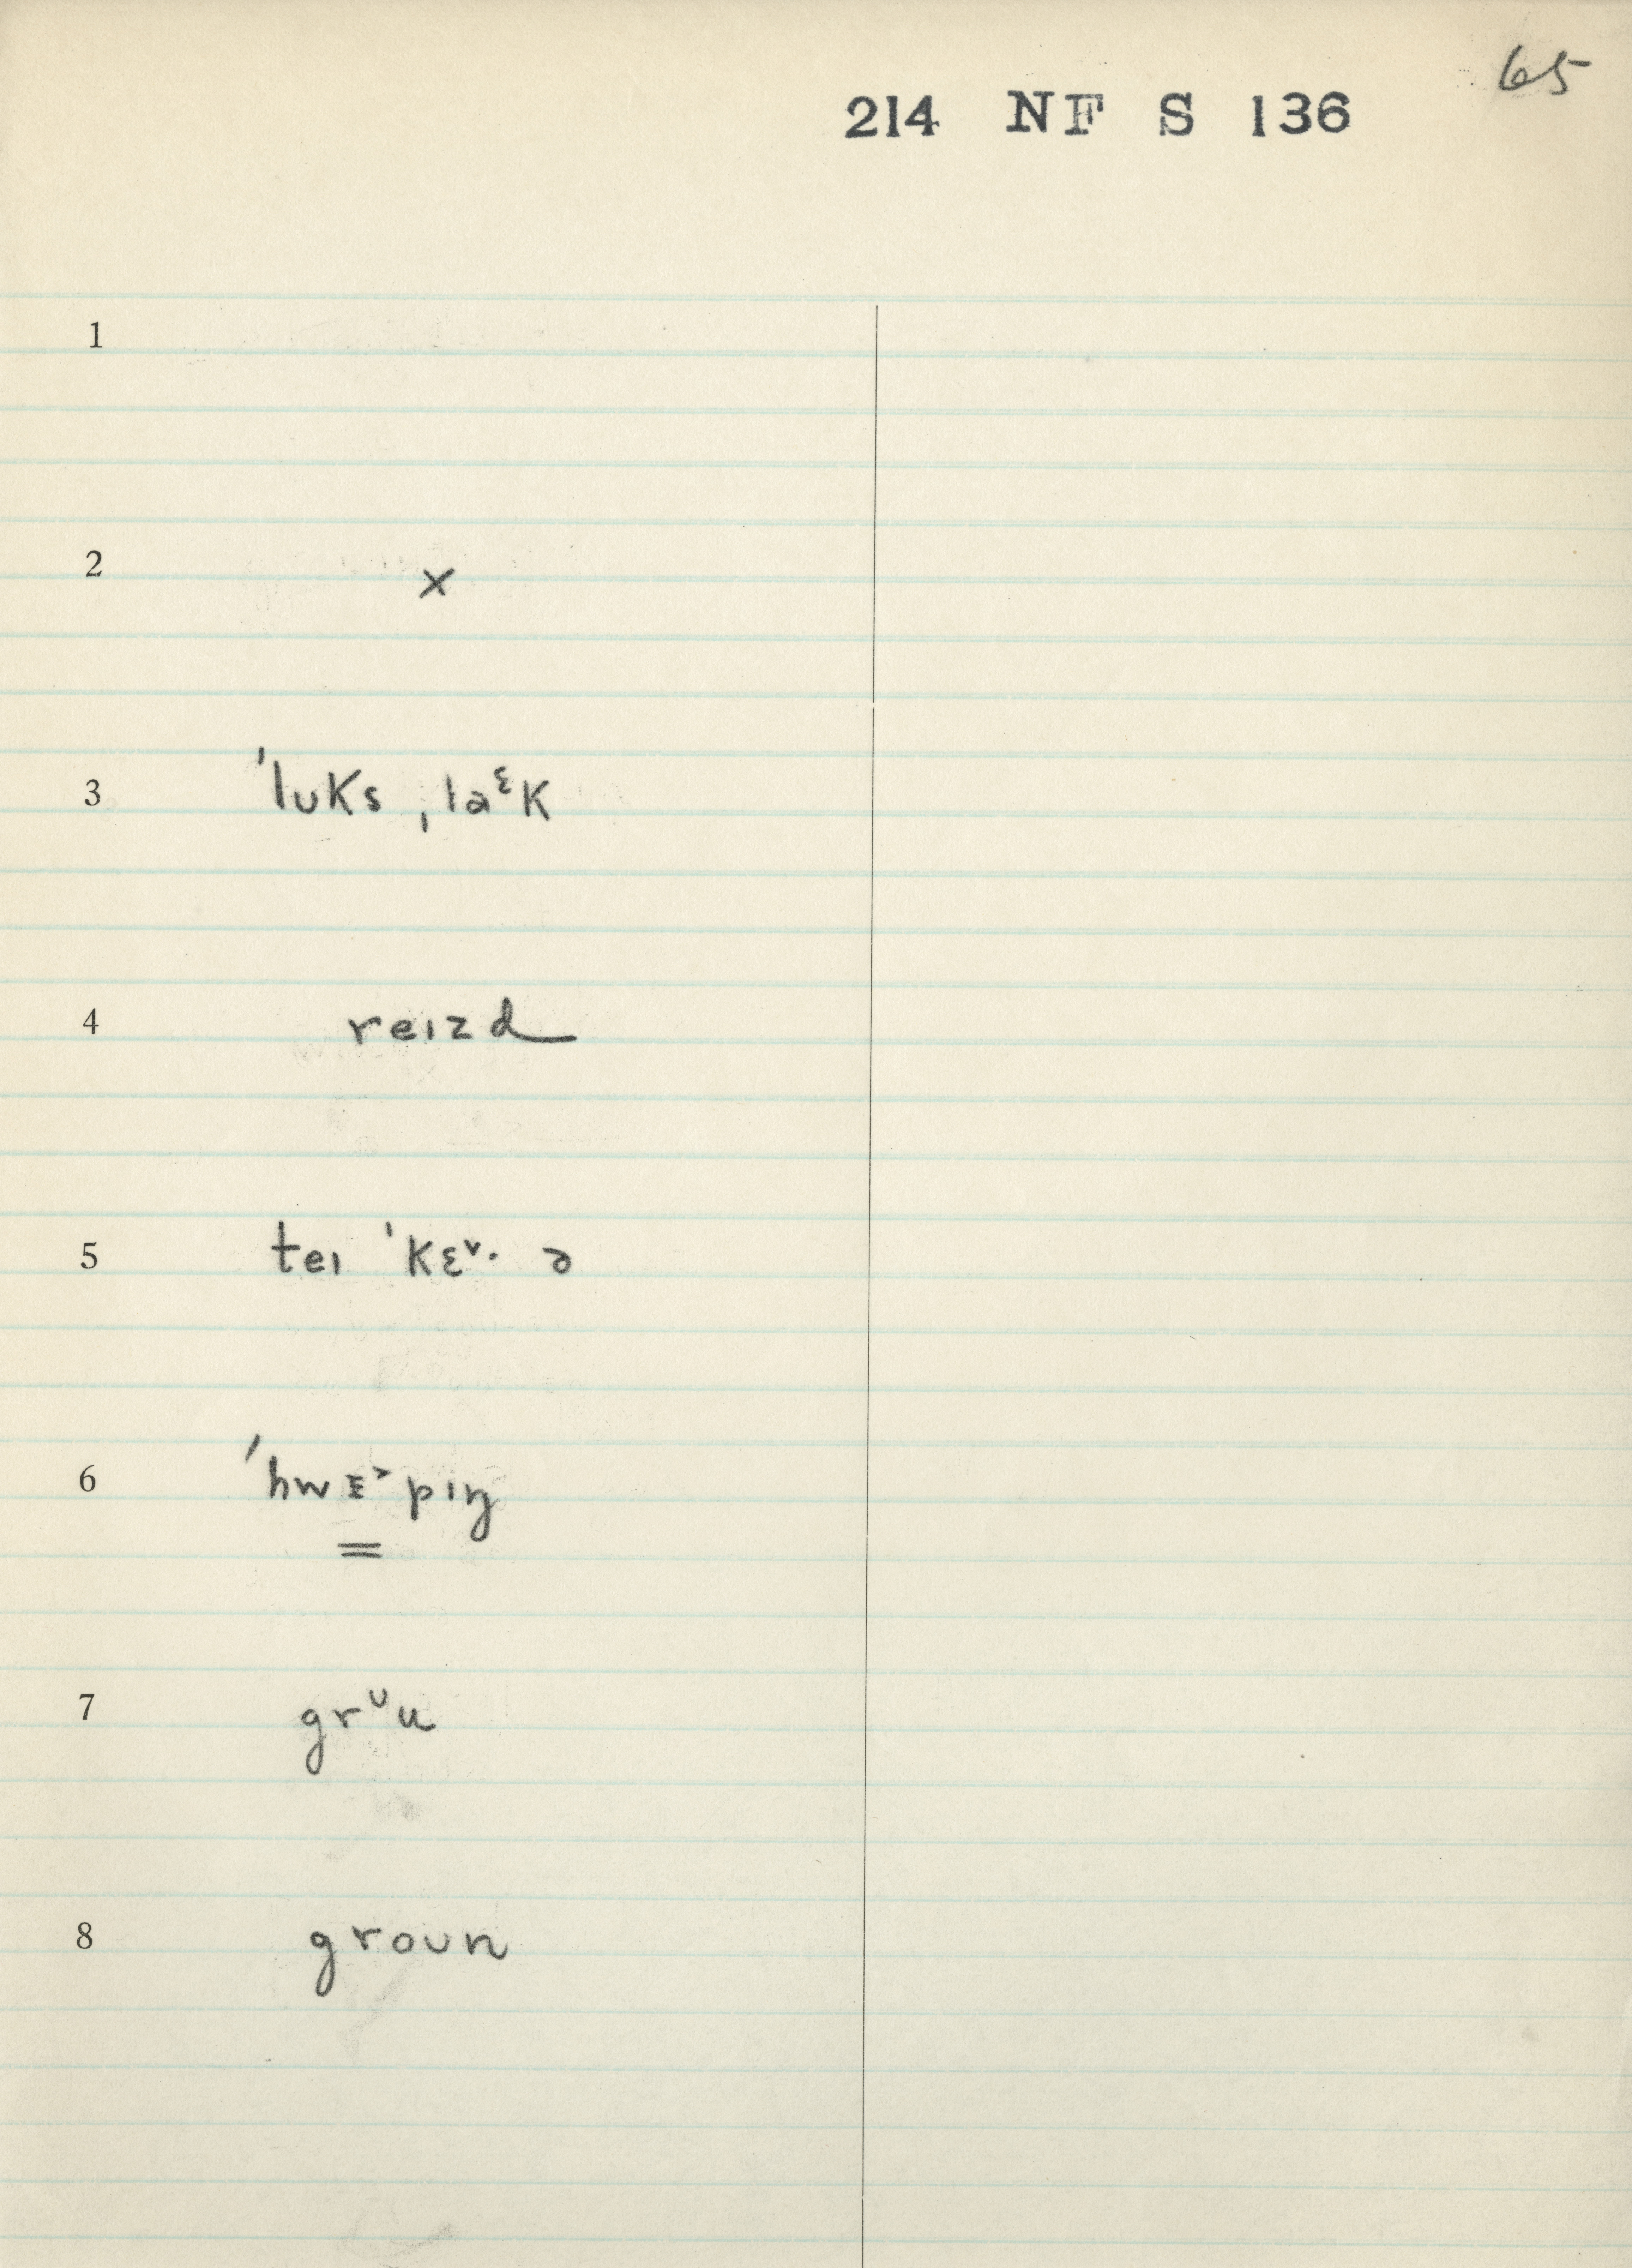 65
214 NF S 136
1
2 ×
3 ˈlʊks ˌlaᵋk
4 reɪzd
5 teɪ ˈkɛ˅· ə
6 ˈhwɪ˃pɪŋ
7 grᶷu
8 groʊn